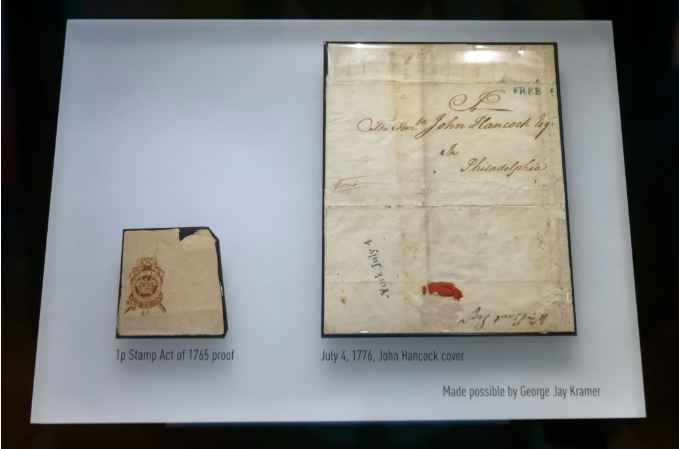 FREE
The Hon.ble John Hancock Esqr.
In
Philadelphia
York July 4
1p Stamp Act of 1765 proof
July 4, 1776, John Hancock cover
Made possible by George Jay Kramer